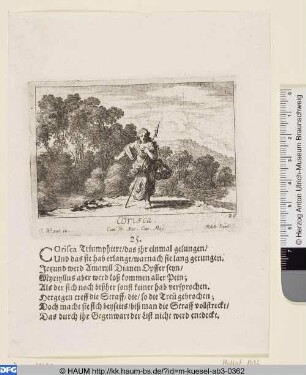 Corisca
25.
COrisca Triumphirt/ das ihr einmal gelungen/
Und das sie hab erlangt/ warnach sie lang gerungen.
Jetzund werd Amaryll Dianen Opffer seyn/
Myrtyllus aber werd loß kommen aller Pein;
Als der sich noch bißher sonst keiner hab versprochen.
Hergegen treff die Straff/ die/ so die Treü gebrochen;
Doch mache sie sich beyseits/ biß man die Straff vollstrecke/
Das durch ihr Gegenwart der List nicht werd entdeckt.
© Herzog Anton Ulrich-Museum Braunschweig
DFG
© HAUM http://kk.haum-bs.de/?id=m-kuesel-ab3-0362